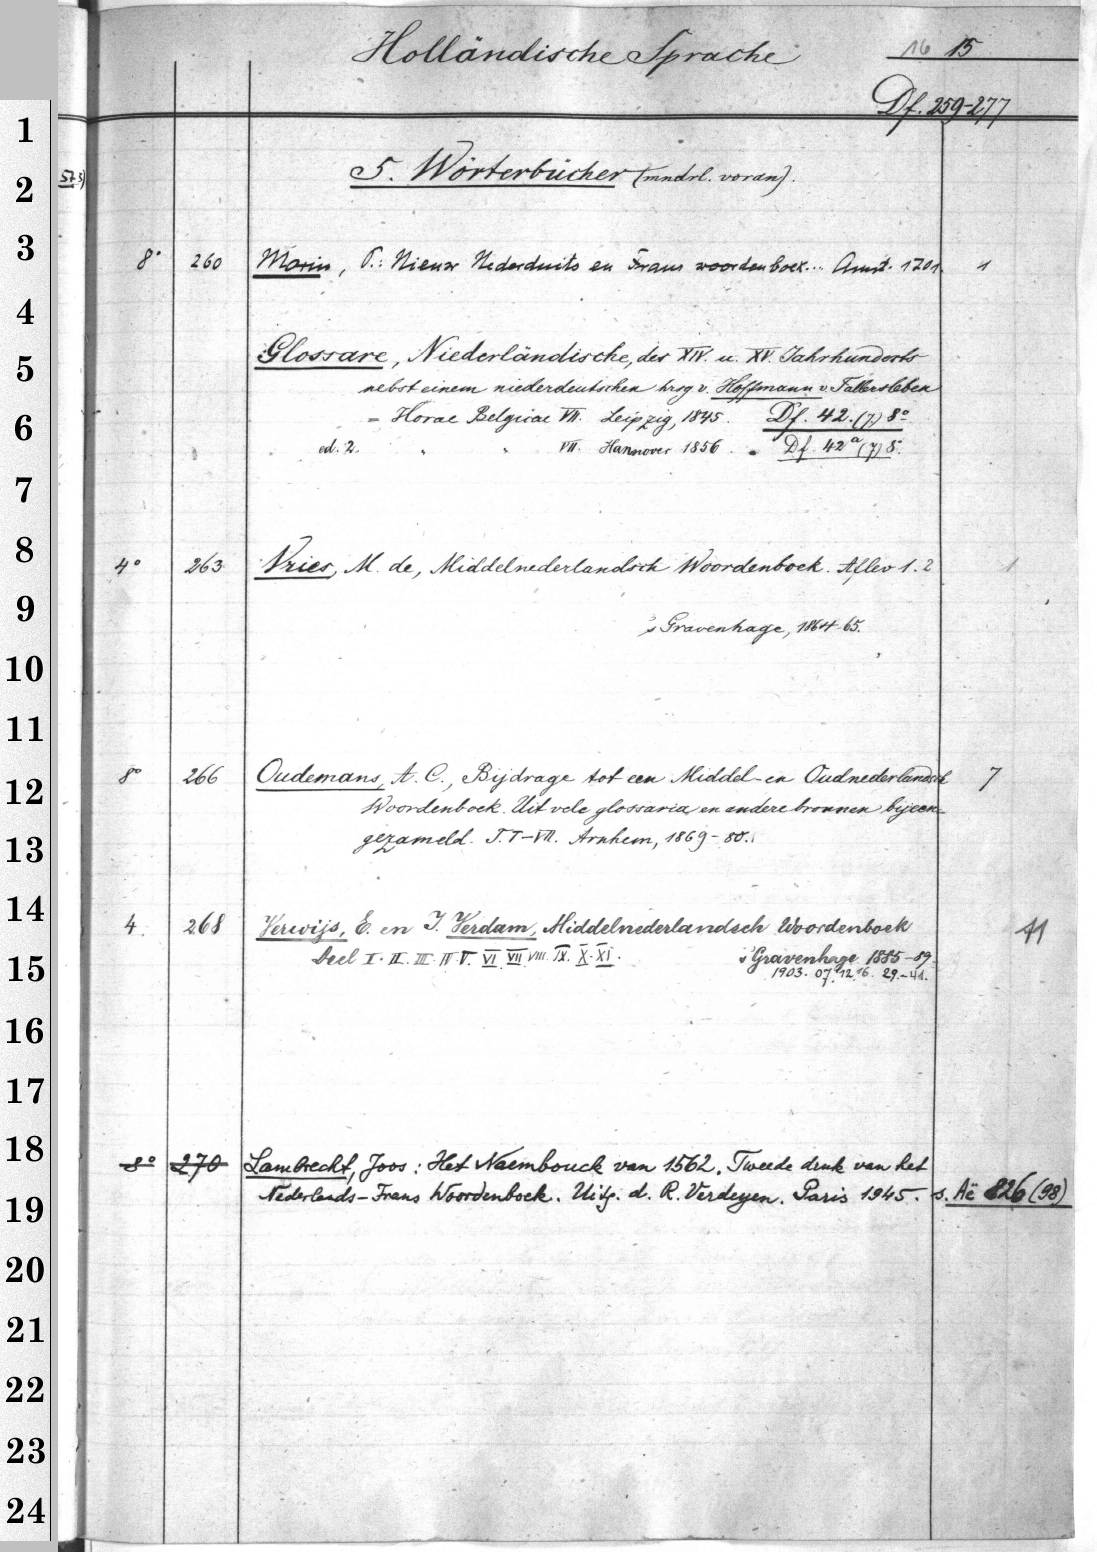 Holländische Sprache 16 15
Df. 259-277
1
2
5. Wörterbücher (mndrl. voran).
3
8° 260 Marin, P.: Nieuw Nederduits en Frans woordenboek... Amst. 1701. 1
4
Glossare, Niederländische, des XIV. u. XV. Jahrhunderts
5
nebst einem niederdeutschen hrsg v. Hoffmann v. Fallersleben
= Horae Belgicae VII. Leipzig, 1845. Df. 42. (7) 8°
6
ed. 2. " " VII. Hannover 1856. Df. 42a (7) 8.
7
8
4° 263 Vries, M. de, Middelnederlandsch Woordenboek. Aflev 1. 2 1
9
's Gravenhage, 1864-65.
10
11
8° 266 Oudemans, A. C., Bijdrage tot een Middel- en Oudnederlandsch 7
12
Woordenboek. Uit vele glossaria en andere bronnen bijeen-
gezameld. T. I-VII. Arnhem, 1869-80.
13
14
4. 268 Verwijs, E. en J. Verdam, Middelnederlandsch Woordenboek 11
Deel I. II. III. IV. V. VI VII VIII IX. X. XI. 's Gravenhage 1885-89.
15
1903. 07. 12 16. 29.-41.
16
17
18
8° 270 Lambrecht, Joos: Het Naembouck van 1562. Tweede druk van het
Nederlands-Frans Woordenboek. Uitg. d. R. Verdeyen. Paris 1945. s. Aë 826 (98)
19
20
21
22
23
24